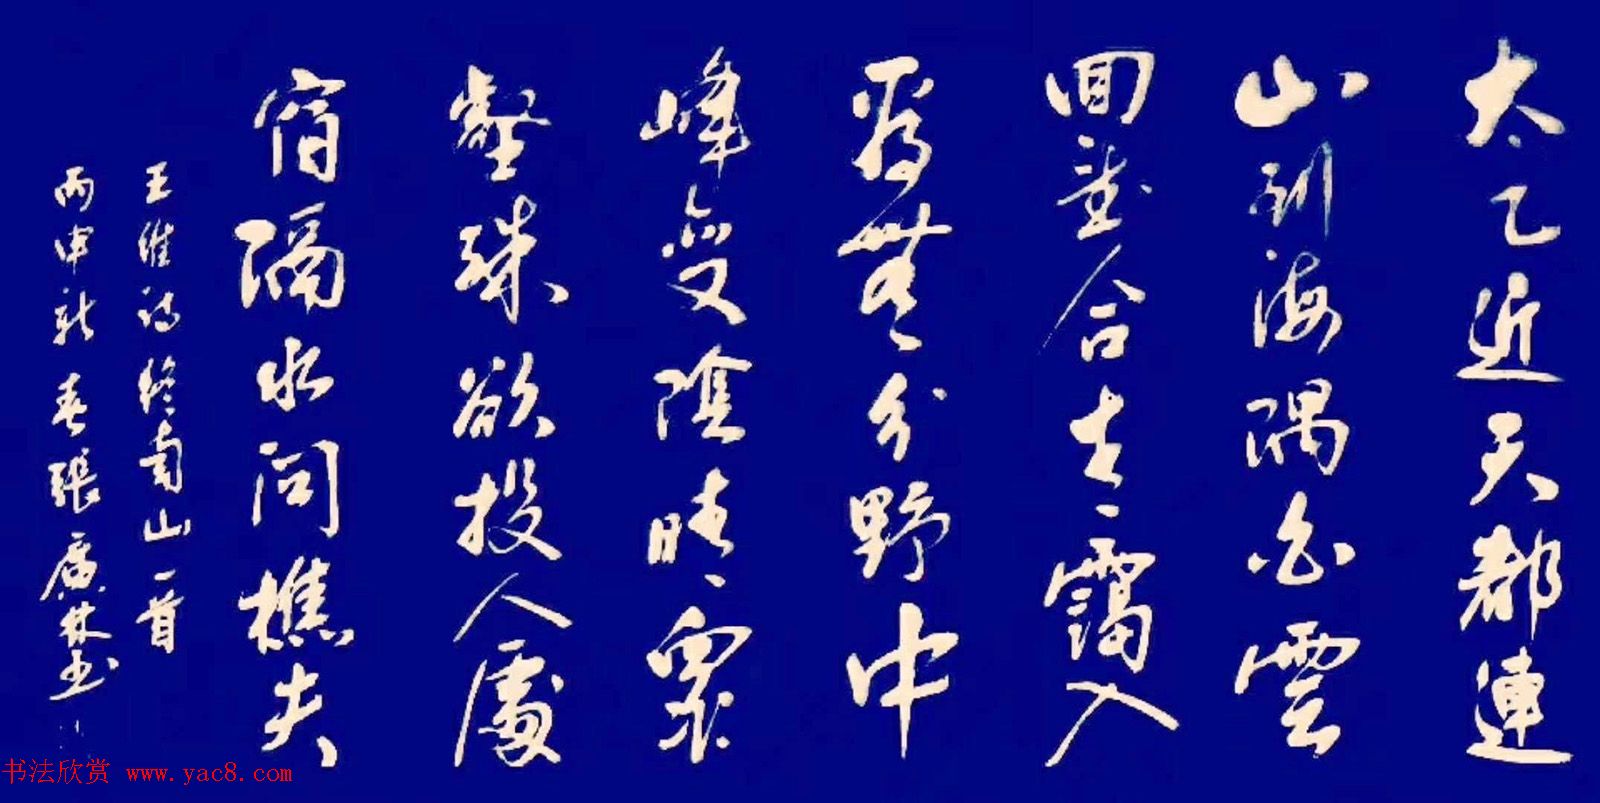 太乙近天都連
山到海隅白雲
回望合青靄入
看無分野中
峰變陰晴眾
壑殊欲投人處
宿隔水問樵夫
王維詩終南山一首
丙申新春張廣林书
书法欣赏 www.yac8.com